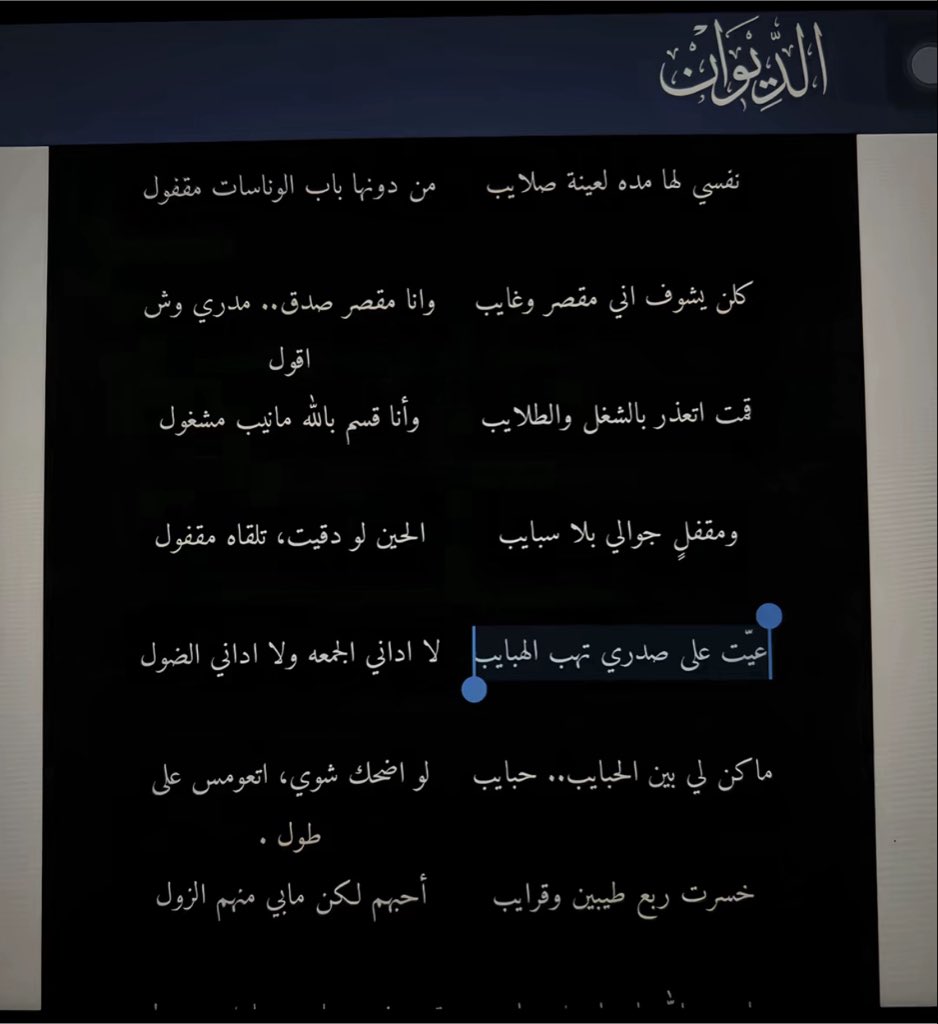 الدِّيوَان
نفسي لها مده لعينة صلايب من دونها باب الوناسات مقفول
كلن يشوف اني مقصر وغايب وانا مقصر صدق.. مدري وش
اقول
قمت اتعذر بالشغل والطلايب وأنا قسم بالله مانيب مشغول
ومقفلٍ جوالي بلا سبايب الحين لو دقيت، تلقاه مقفول
عيّت على صدري تهب الهبايب لا اداني الجمعه ولا اداني الضول
ماكن لي بين الحبايب.. حبايب لو اضحك شوي، اتعومس على
طول .
خسرت ربع طيبين وقرايب أحبهم لكن مابي منهم الزول